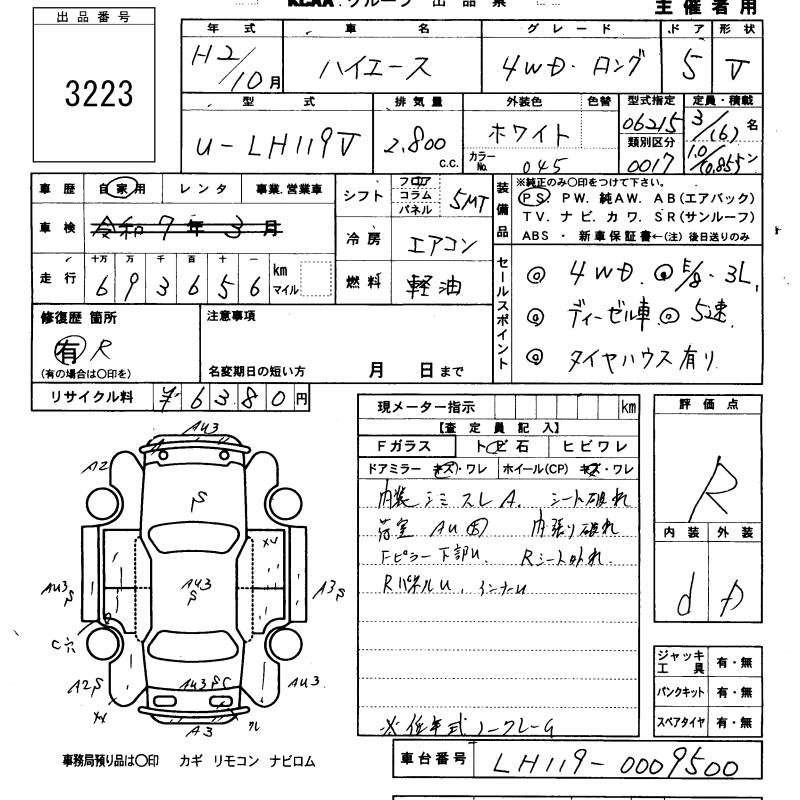 KCAA グループ 出品票
主催者用
出品番号
3223
年式 車名 グレード ドア 形状
H2/10月 ハイエース 4WD・ロング 5 V
型式 排気量 外装色 色替 型式指定 定員・積載
U-LH119V 2,800 c.c. ホワイト カラーNo. 045 06215 類別区分 0017 3/(6)名 1.0/(0.85)トン
車歴 自家用 レンタ 事業.営業車
車検 令和7年3月
走行 十万 万 千 百 十 一 km マイル
6 9 3 6 5 6
シフト フロア コラム パネル 5MT
冷房 エアコン
燃料 軽油
装備品 ※純正のみ○印をつけて下さい。
PS PW. 純AW. AB(エアバック)
TV. ナビ. カワ. SR(サンルーフ)
ABS ・ 新車保証書←(注)後日送りのみ
セールスポイント
◎ 4WD. ◎ E/g・3L
◎ ディーゼル車 ◎ 5速
◎ タイヤハウス有り
修復歴 箇所
有 R
(有の場合は○印を)
注意事項
名変期日の短い方 月 日まで
リサイクル料 ¥ 6 3 8 0 円
現メーター指示 km
【査定員記入】
Fガラス トビ石 ヒビワレ
ドアミラー キズ・ワレ ホイール(CP) キズ・ワレ
内装シミ スレ A. シート破れ
荷室 AU 内張り破れ
Fピラー下部U Rシート外れ.
RパネルU, インナーU
※低年式ノークレーム
評価点
R
内装 外装
d
ジャッキ工具 有・無
パンクキット 有・無
スペアタイヤ 有・無
AU3
A2
S
XV
AU3 S
AU3 S
A3 S
C穴
A2S
AU3 S C
AU3
XX
A3
ワレ
事務局預り品は○印 カギ リモコン ナビロム
車台番号 LH119-0009500